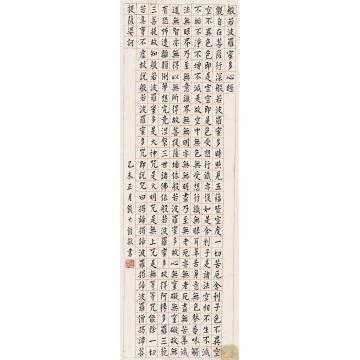 般若波羅蜜多心經
觀自在菩薩行深般若波羅蜜多時照見五蘊皆空度一切苦厄舍利子色不異空
空不異色色即是空空即是色受想行識亦復如是舍利子是諸法空相不生不滅
不垢不淨不增不減是故空中無色無受想行識無眼耳鼻舌身意無色聲香味觸
法無眼界乃至無意識界無無明亦無無明盡乃至無老死亦無老死盡無苦集滅
道無智亦無得以無所得故菩提薩埵依般若波羅蜜多故心無罣礙無罣礙故無
有恐怖遠離顛倒夢想究竟涅槃三世諸佛依般若波羅蜜多故得阿耨多羅三藐
三菩提故知般若波羅蜜多是大神咒是大明咒是無上咒是無等等咒能除一切
苦真實不虛故說般若波羅蜜多咒即說咒曰揭諦揭諦波羅揭諦波羅僧揭諦菩
提薩婆訶
乙未正月 敬書